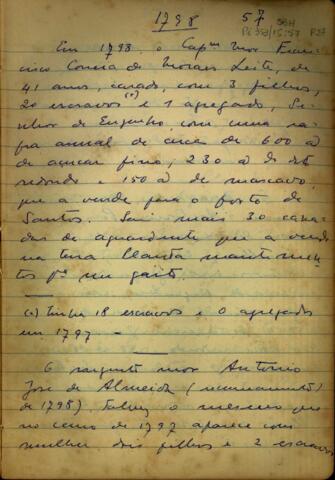 1798 57 SBH
Pi 352 P.57 P27
Em 1798, o Capm Mor Fran-
cisco Correia de Moraes Leite, de
41 anos, casado, com 3 filhos,
20 escravos (a) e 1 agregado, Se-
nhor de Engenho, com uma sa-
fra annual de cerca de 600 @
de açucar fino, 230 @ de dto
redondo e 150 @ de mascavo,
que a vende para o porto de
Santos. Saem mais 30 cana-
das de aguardente que a vende
na terra. Planta mantimen-
tos pa seu gasto.
(a) Tinha 18 escravos e 0 agregados
em 1797 —
O sargento mor Antonio
José de Almeida (recenseamento)
de 1798). Talvez o mesmo que
no censo de 1797 aparece com
mulher, dois filhos e 2 escravos